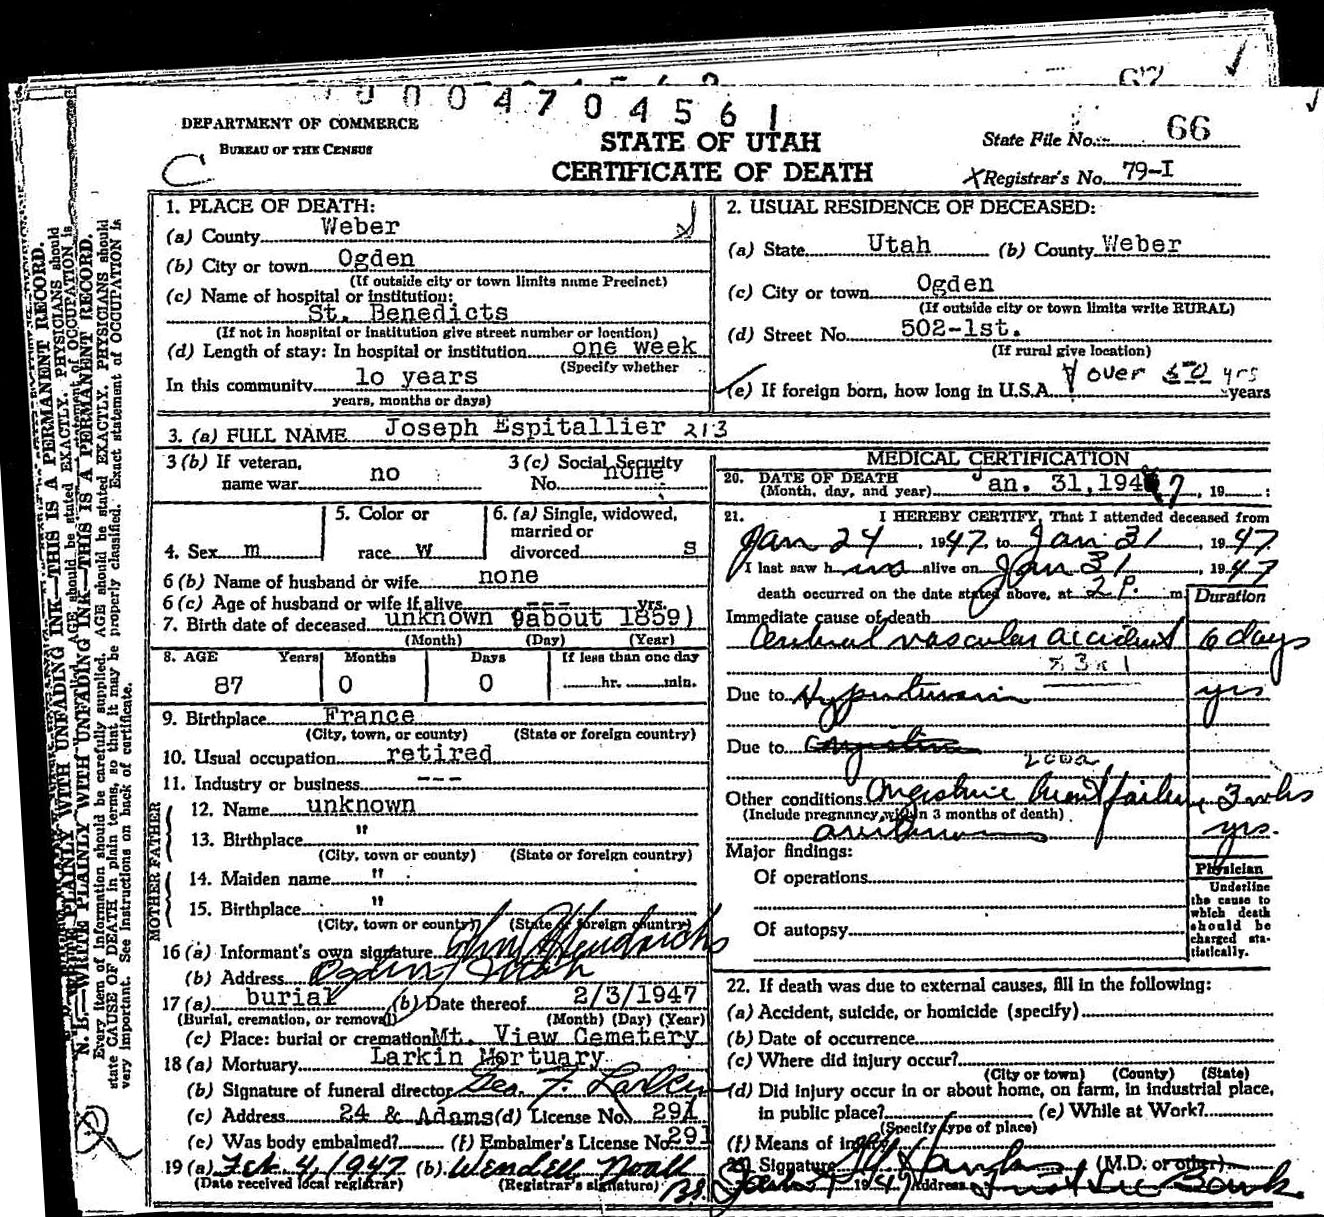 67
0 0 0 4 7 0 4 5 6 1
DEPARTMENT OF COMMERCE
BUREAU OF THE CENSUS
C
STATE OF UTAH
CERTIFICATE OF DEATH
State File No. 66
X Registrar's No. 79-I
N. B.—WRITE PLAINLY WITH UNFADING INK—THIS IS A PERMANENT RECORD.
Every item of information should be carefully supplied. AGE should be stated EXACTLY. PHYSICIANS should
state CAUSE OF DEATH in plain terms, so that it may be properly classified. Exact statement of OCCUPATION is
very important. See instructions on back of certificate.
1. PLACE OF DEATH:
(a) County Weber
(b) City or town Ogden
(If outside city or town limits name Precinct)
(c) Name of hospital or institution:
St. Benedicts
(If not in hospital or institution give street number or location)
(d) Length of stay: In hospital or institution one week
(Specify whether
In this community 10 years
years, months or days)
2. USUAL RESIDENCE OF DECEASED:
(a) State Utah (b) County Weber
(c) City or town Ogden
(If outside city or town limits write RURAL)
(d) Street No. 502-1st.
(If rural give location)
(e) If foreign born, how long in U.S.A. over 50 yrs years
3. (a) FULL NAME Joseph Espitallier 213
3 (b) If veteran,
name war no
3 (c) Social Security
No. none
4. Sex m
5. Color or
race W
6. (a) Single, widowed,
married or
divorced S
6 (b) Name of husband or wife none
6 (c) Age of husband or wife if alive --- yrs.
7. Birth date of deceased unknown 9about 1859)
(Month) (Day) (Year)
8. AGE Years Months Days If less than one day
87 0 0 hr. min.
9. Birthplace France
(City, town, or county) (State or foreign country)
10. Usual occupation retired
11. Industry or business ---
FATHER
12. Name unknown
13. Birthplace "
(City, town or county) (State or foreign country)
MOTHER
14. Maiden name "
15. Birthplace "
(City, town or county) (State or foreign country)
16 (a) Informant's own signature Hendricks
(b) Address Ogden, Utah
17 (a) burial (b) Date thereof 2/3/1947
(Burial, cremation, or removal) (Month) (Day) (Year)
(c) Place: burial or cremation Mt. View Cemetery
18 (a) Mortuary Larkin Mortuary
(b) Signature of funeral director Geo. F. Larkin
(c) Address 24 & Adams (d) License No. 291
(e) Was body embalmed? (f) Embalmer's License No. 291
19 (a) Feb 4, 1947 (b) Wendell Noall
(Date received local registrar) (Registrar's signature)
MEDICAL CERTIFICATION
20. DATE OF DEATH
(Month, day, and year) Jan. 31, 1947, 19
21. I HEREBY CERTIFY, That I attended deceased from
Jan 24, 1947, to Jan 31, 1947
I last saw him alive on Jan 31, 1947
death occurred on the date stated above, at 2 P. m. Duration
Immediate cause of death
Cerebral vascular accident 6 days
Due to Hypertension yrs
Due to
Other conditions Congestive heart failure 3 wks
(Include pregnancy within 3 months of death)
yrs.
Major findings:
Of operations
Of autopsy
Physician
Underline
the cause to
which death
should be
charged sta-
tistically.
22. If death was due to external causes, fill in the following:
(a) Accident, suicide, or homicide (specify)
(b) Date of occurrence
(c) Where did injury occur?
(City or town) (County) (State)
(d) Did injury occur in or about home, on farm, in industrial place,
in public place? (e) While at Work?
(Specify type of place)
(f) Means of injury
23. Signature (M.D. or other)
19 47 Address